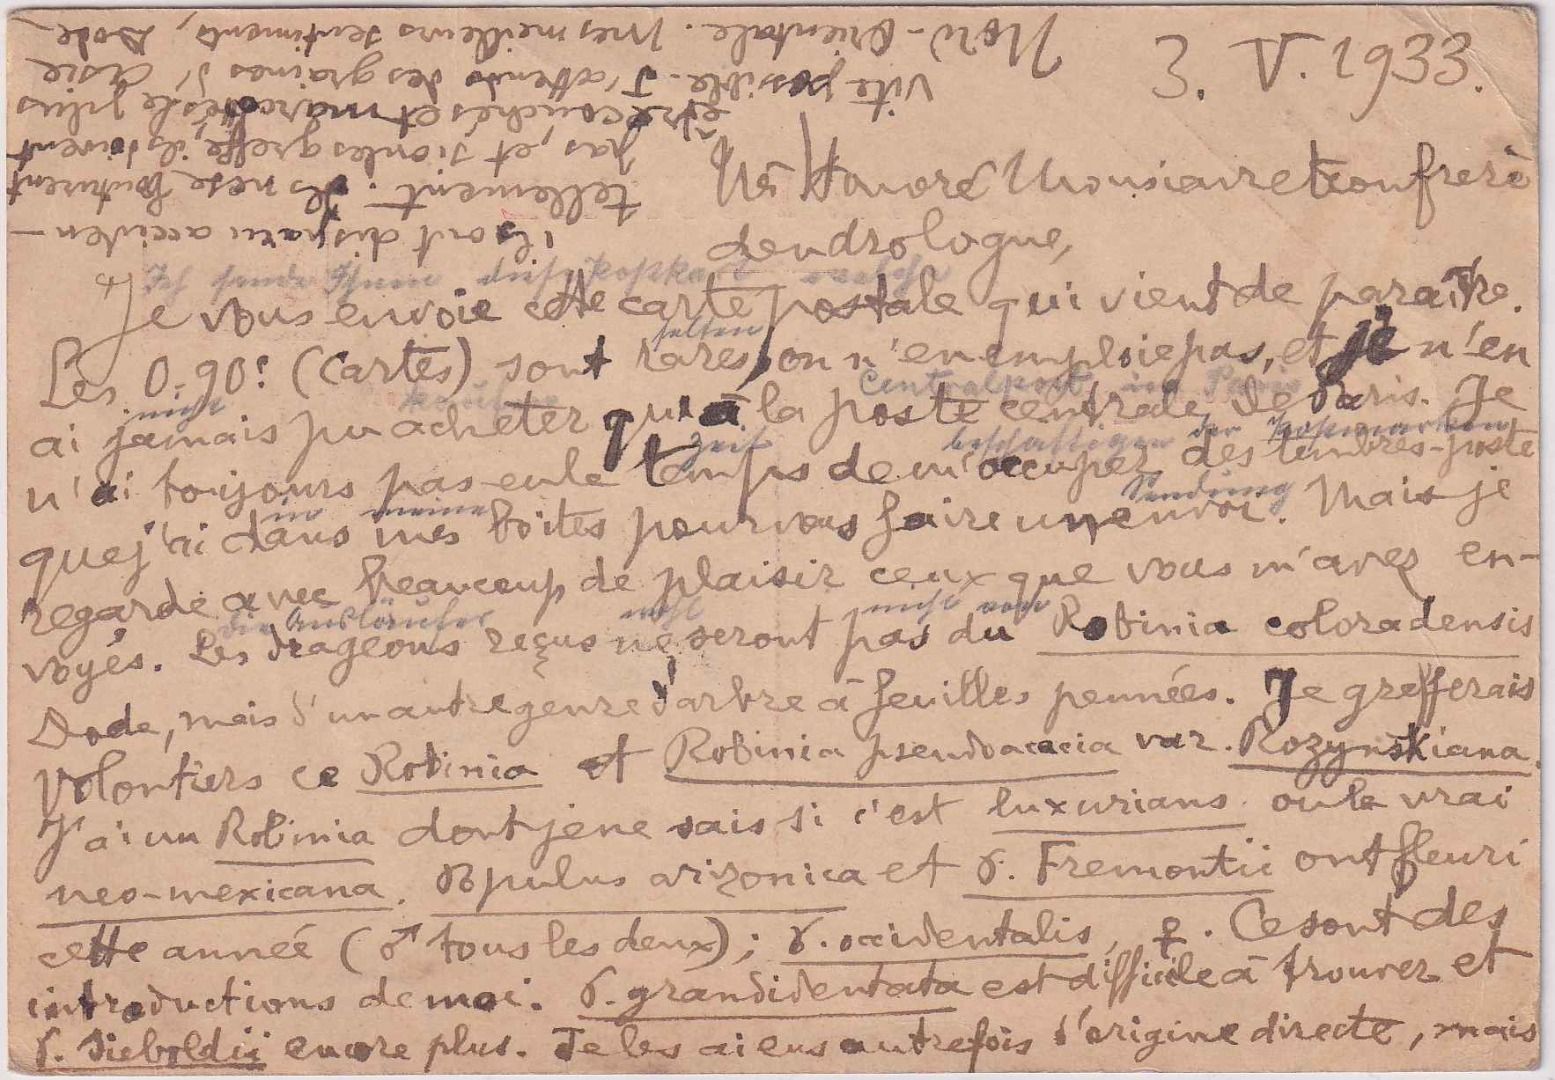 3. V. 1933.
Très Honoré Monsieur et confrère
dendrologue,
Ich sende Ihnen diese Postkarte welche
Je vous envoie cette carte postale qui vient de paraître.
selten
Les 0.90: (cartes) sont rares, on n'en emploie pas, et je n'en
nicht kaufen Centralpost in Paris
ai jamais pu acheter qu'à la poste centrale de Paris. Je
Zeit beschäftigen der Postmarken
n'ai toujours pas eu le temps de m'occuper des timbres-poste
in meine Sendung
que j'ai dans mes boîtes pour vous faire un envoi. Mais je
regarde avec beaucoup de plaisir ceux que vous m'avez en-
die Ausläufer nicht von
voyés. Les drageons reçus ne seront pas du Robinia coloradensis
Dode, mais d'un autre genre d'arbre à feuilles pennées. Je grefferais
volontiers ce Robinia et Robinia pseudoacacia var. Rozynskiana.
J'ai un Robinia dont je ne sais si c'est luxurians ou le vrai
neo-mexicana. Populus arizonica et P. Fremontii ont fleuri
cette année (♂ tous les deux); P. occidentalis, ♀. Ce sont des
introductions de moi. P. grandidentata est difficile à trouver et
P. Sieboldii encore plus. Je les ai eus autrefois d'origine directe, mais
ils ont disparu acciden-
tellement. Ils ne se bouturent
pas, et si on les greffe, ils doivent
être couchés et marcottés le plus
vite possible. J'attends des graines d'Asie
Nord-Orientale. Mes meilleurs sentiments, Dode